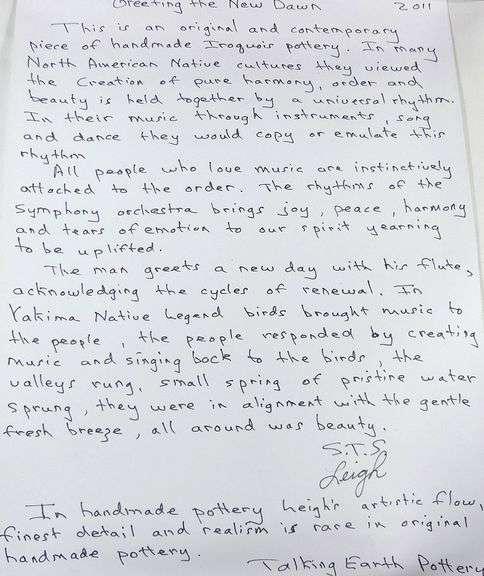 Greeting the New Dawn 2011
This is an original and contemporary
piece of handmade Iroquois pottery. In many
North American Native cultures they viewed
the Creation of pure harmony, order and
beauty is held together by a universal rhythm.
In their music through instruments, song
and dance they would copy or emulate this
rhythm
All people who love music are instinctively
attached to the order. The rhythms of the
Symphony orchestra brings joy, peace, harmony
and tears of emotion to our spirit yearning
to be uplifted.
The man greets a new day with his flute,
acknowledging the cycles of renewal. In
Yakima Native Legend birds brought music to
the people, the people responded by creating
music and singing back to the birds, the
valleys rung, small spring of pristine water
sprung, they were in alignment with the gentle
fresh breeze, all around was beauty.
S.T.S.
Leigh
In handmade pottery Leigh's artistic flow,
finest detail and realism is rare in original
handmade pottery.
Talking Earth Pottery